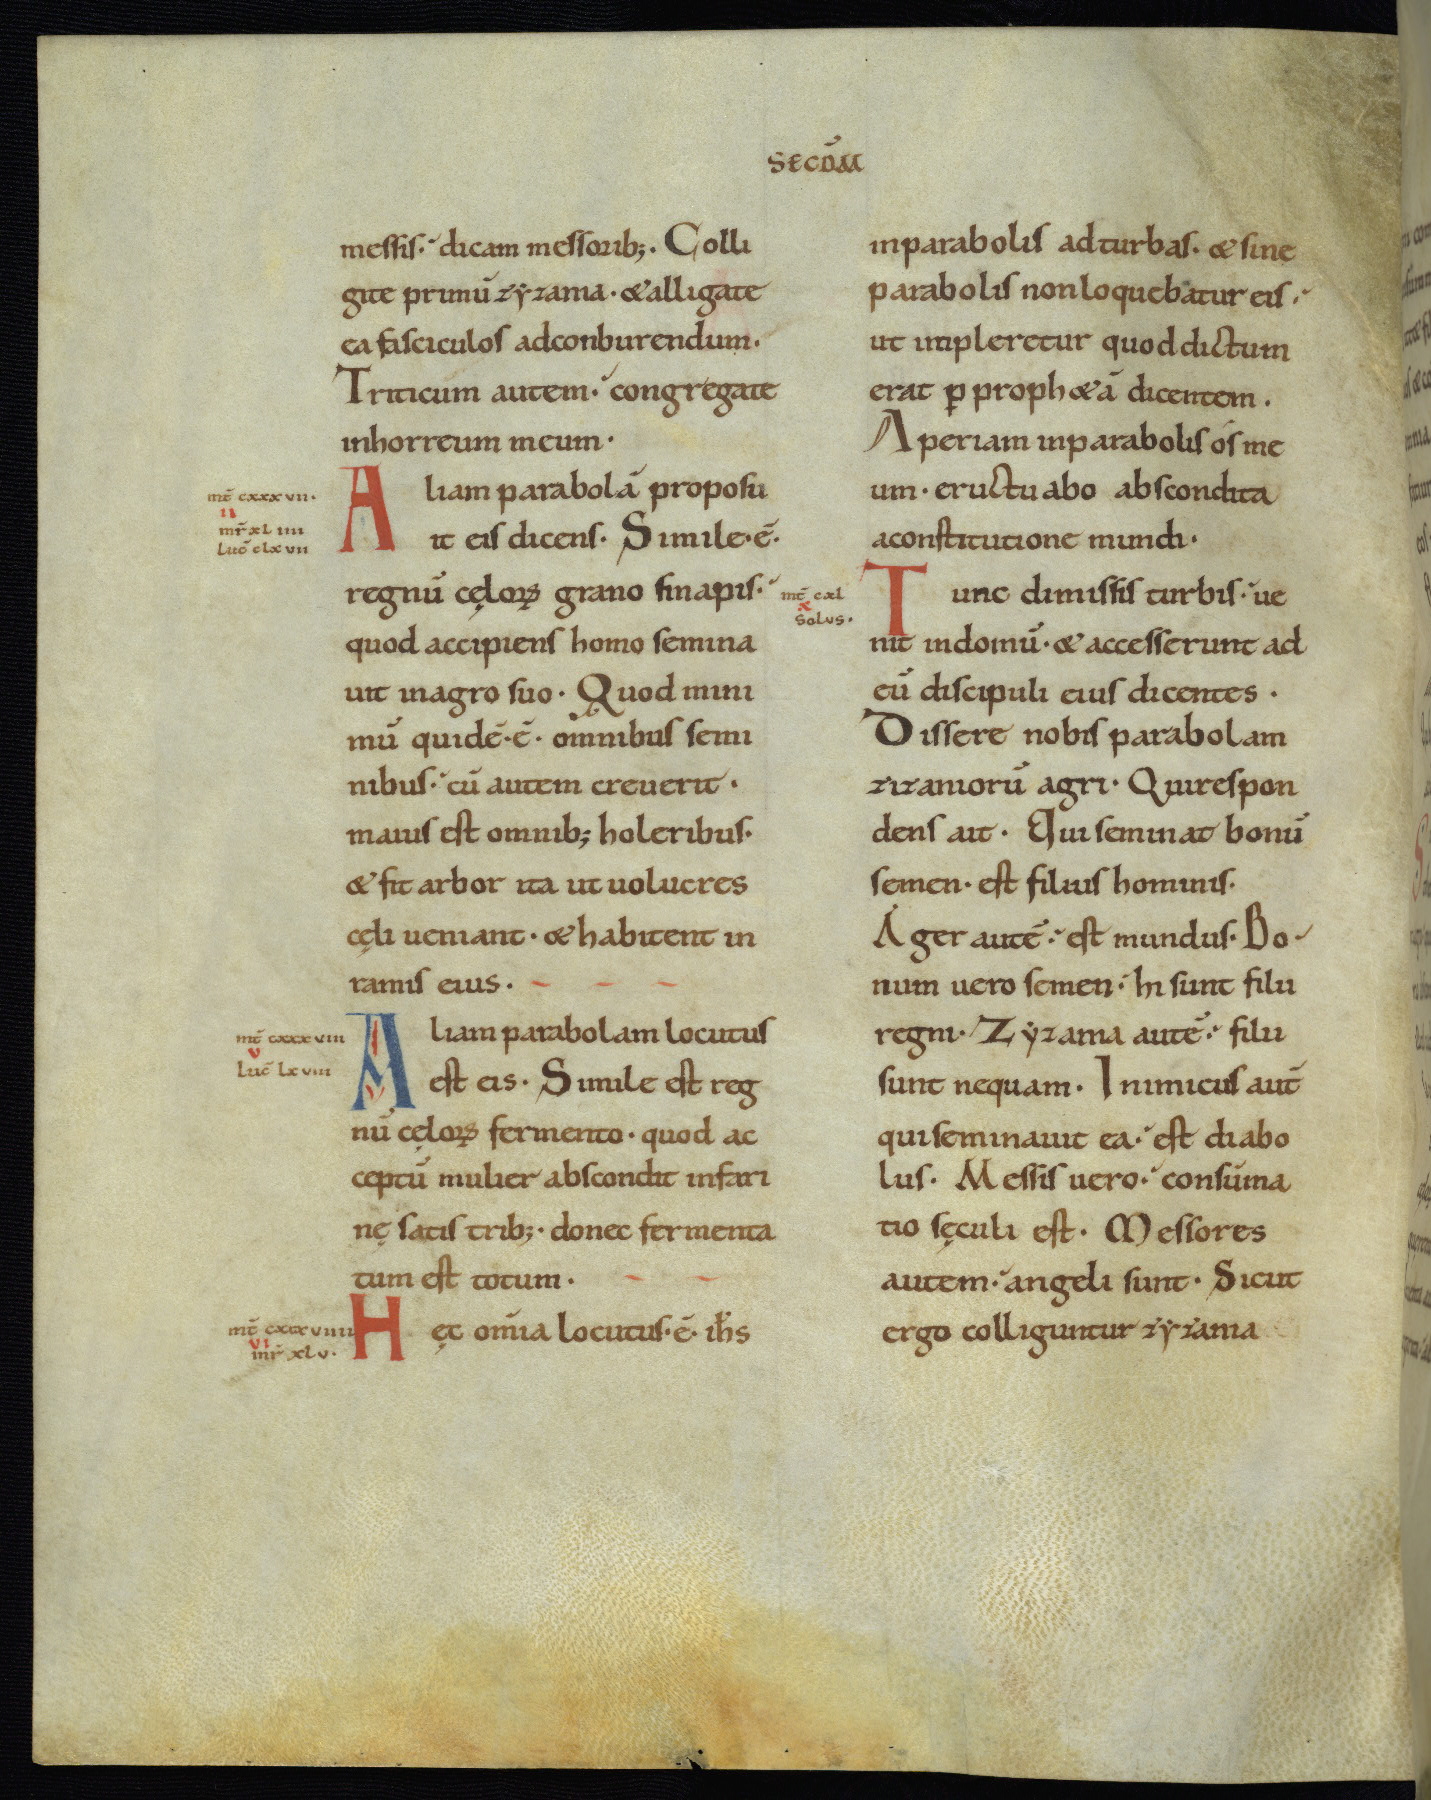 SECDM
messis· dicam messorib;· Colli
gite primū zyzania· & alligate
ea fasciculos adconburendum·
Triticum autem· congregate
inhorreum meum·
mt̄ cxxxvii·
ii
mr̄ xliiii
Luc̄ clxvii
Aliam parabolā proposu
it eis dicens· Simile·ē·
regnū cęloꝝ grano sinapis·
quod accipiens homo semina
uit inagro suo· Quod mini
mū quidē·ē· omnibus semi
nibus· cū autem creuerit·
maius est omnib; holeribus·
& fit arbor ita ut uolucres
cęli ueniant· & habitent in
ramis eius·
mt̄ cxxxviii
v
Luc̄ lxviii
Aliam parabolam locutus
est eis· Simile est reg
nū cęloꝝ fermento· quod ac
ceptū mulier abscondit infari
nę satis trib;· donec fermenta
tum est totum·
mt̄ cxxxviiii
vi
mr̄ xlv·
Hęc om̄ia locutus·ē· ih̄s
inparabolis adturbas· & sine
parabolis nonloquebatur eis·
ut impleretur quoddictum
erat ꝑ proph&ā dicentem·
Aperiam inparabolis os me
um· eructuabo abscondita
aconstitutione mundi·
mt̄ cxl
x
Solus·
Tunc dimissis turbis· ue
nit indomū· & accesserunt ad
eū discipuli eius dicentes·
Dissere nobis parabolam
zizaniorū agri· Quirespon
dens ait· Qui seminat bonū
semen· est filius hominis·
Ager autē· est mundus· Bo
num uero semen· hi sunt filii
regni· Zyzania autē· filii
sunt nequam· Inimicus aut̄
qui seminauit ea· est diabo
lus· Messis uero· consūma
tio sęculi est· Messores
autem· angeli sunt· Sicut
ergo colliguntur zyzania